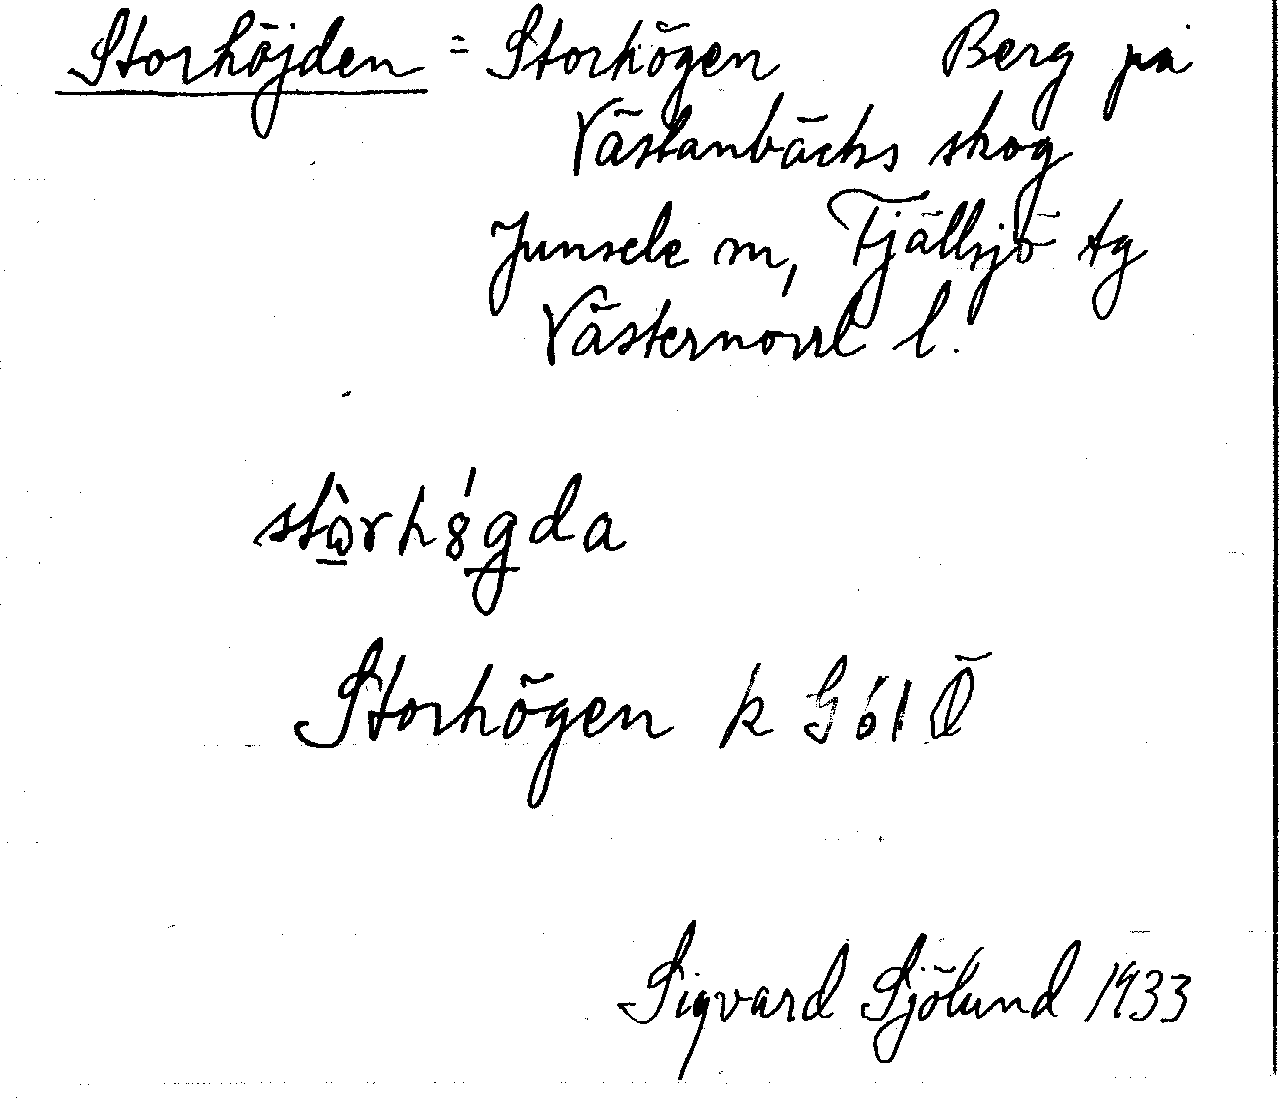 Storhöjden = Storhögen Berg på
Västanbäcks skog
Junsele sn, Fjällsjö tg
Västernorrl l.
stòrhø̀gda
Storhögen k G61Ö
Sigvard Sjölund 1933